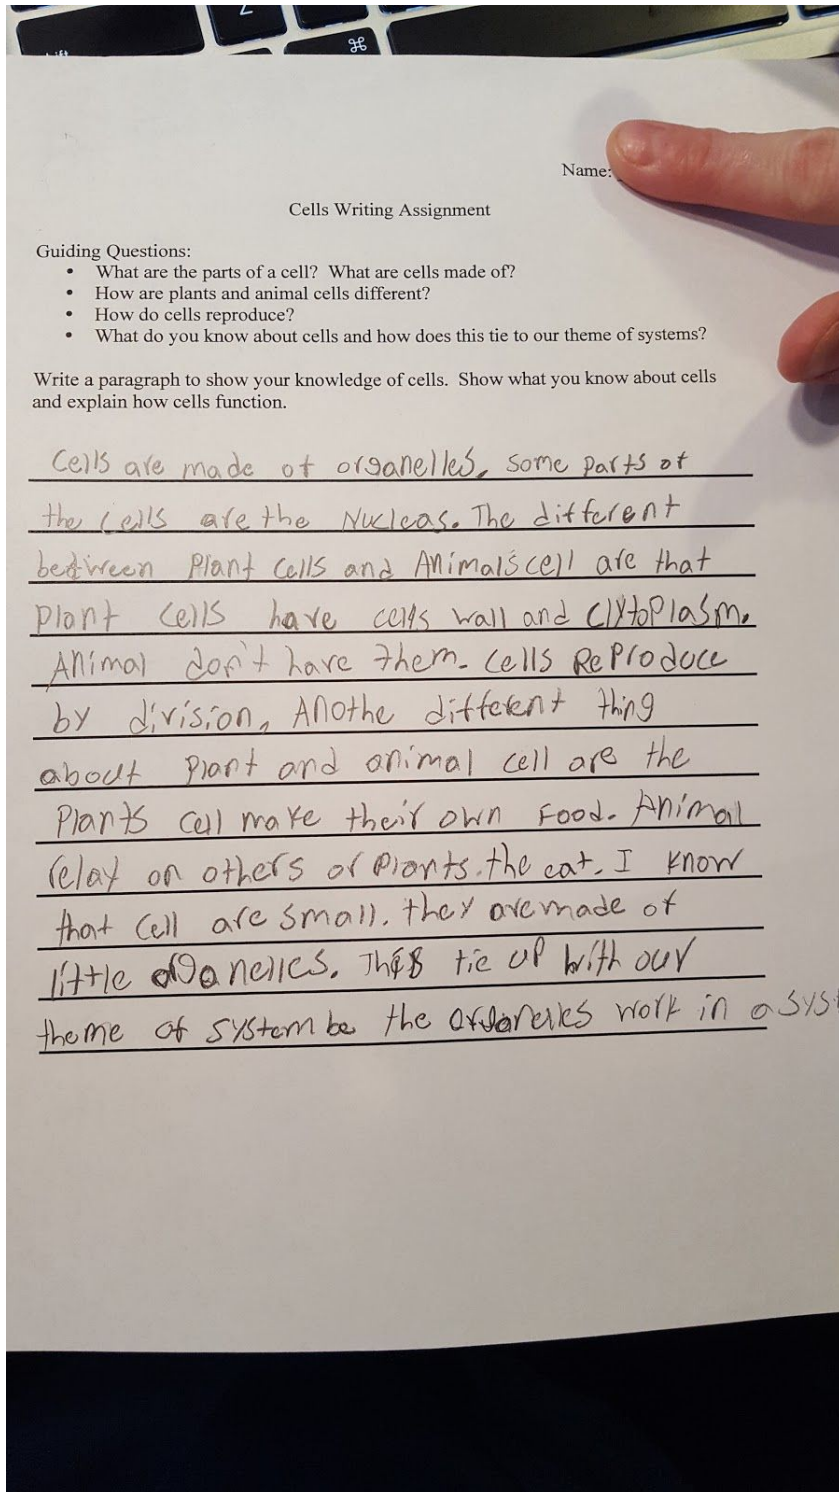 ⌘
Name:
Cells Writing Assignment
Guiding Questions:
• What are the parts of a cell? What are cells made of?
• How are plants and animal cells different?
• How do cells reproduce?
• What do you know about cells and how does this tie to our theme of systems?
Write a paragraph to show your knowledge of cells. Show what you know about cells
and explain how cells function.
Cells are made of organelles, some parts of
the cells are the Nucleas. The different
between Plant Cells and Animals cell are that
Plant cells have cells wall and Clytoplasm.
Animal don't have them. Cells Reproduce
by division, Anothe different thing
about Plant and animal cell are the
Plants cell make their own Food. Animal
relay on others or Plants. the eat. I know
that Cell are small. they are made of
little organelles. This tie up with our
theme of system be the organelles work in a sys